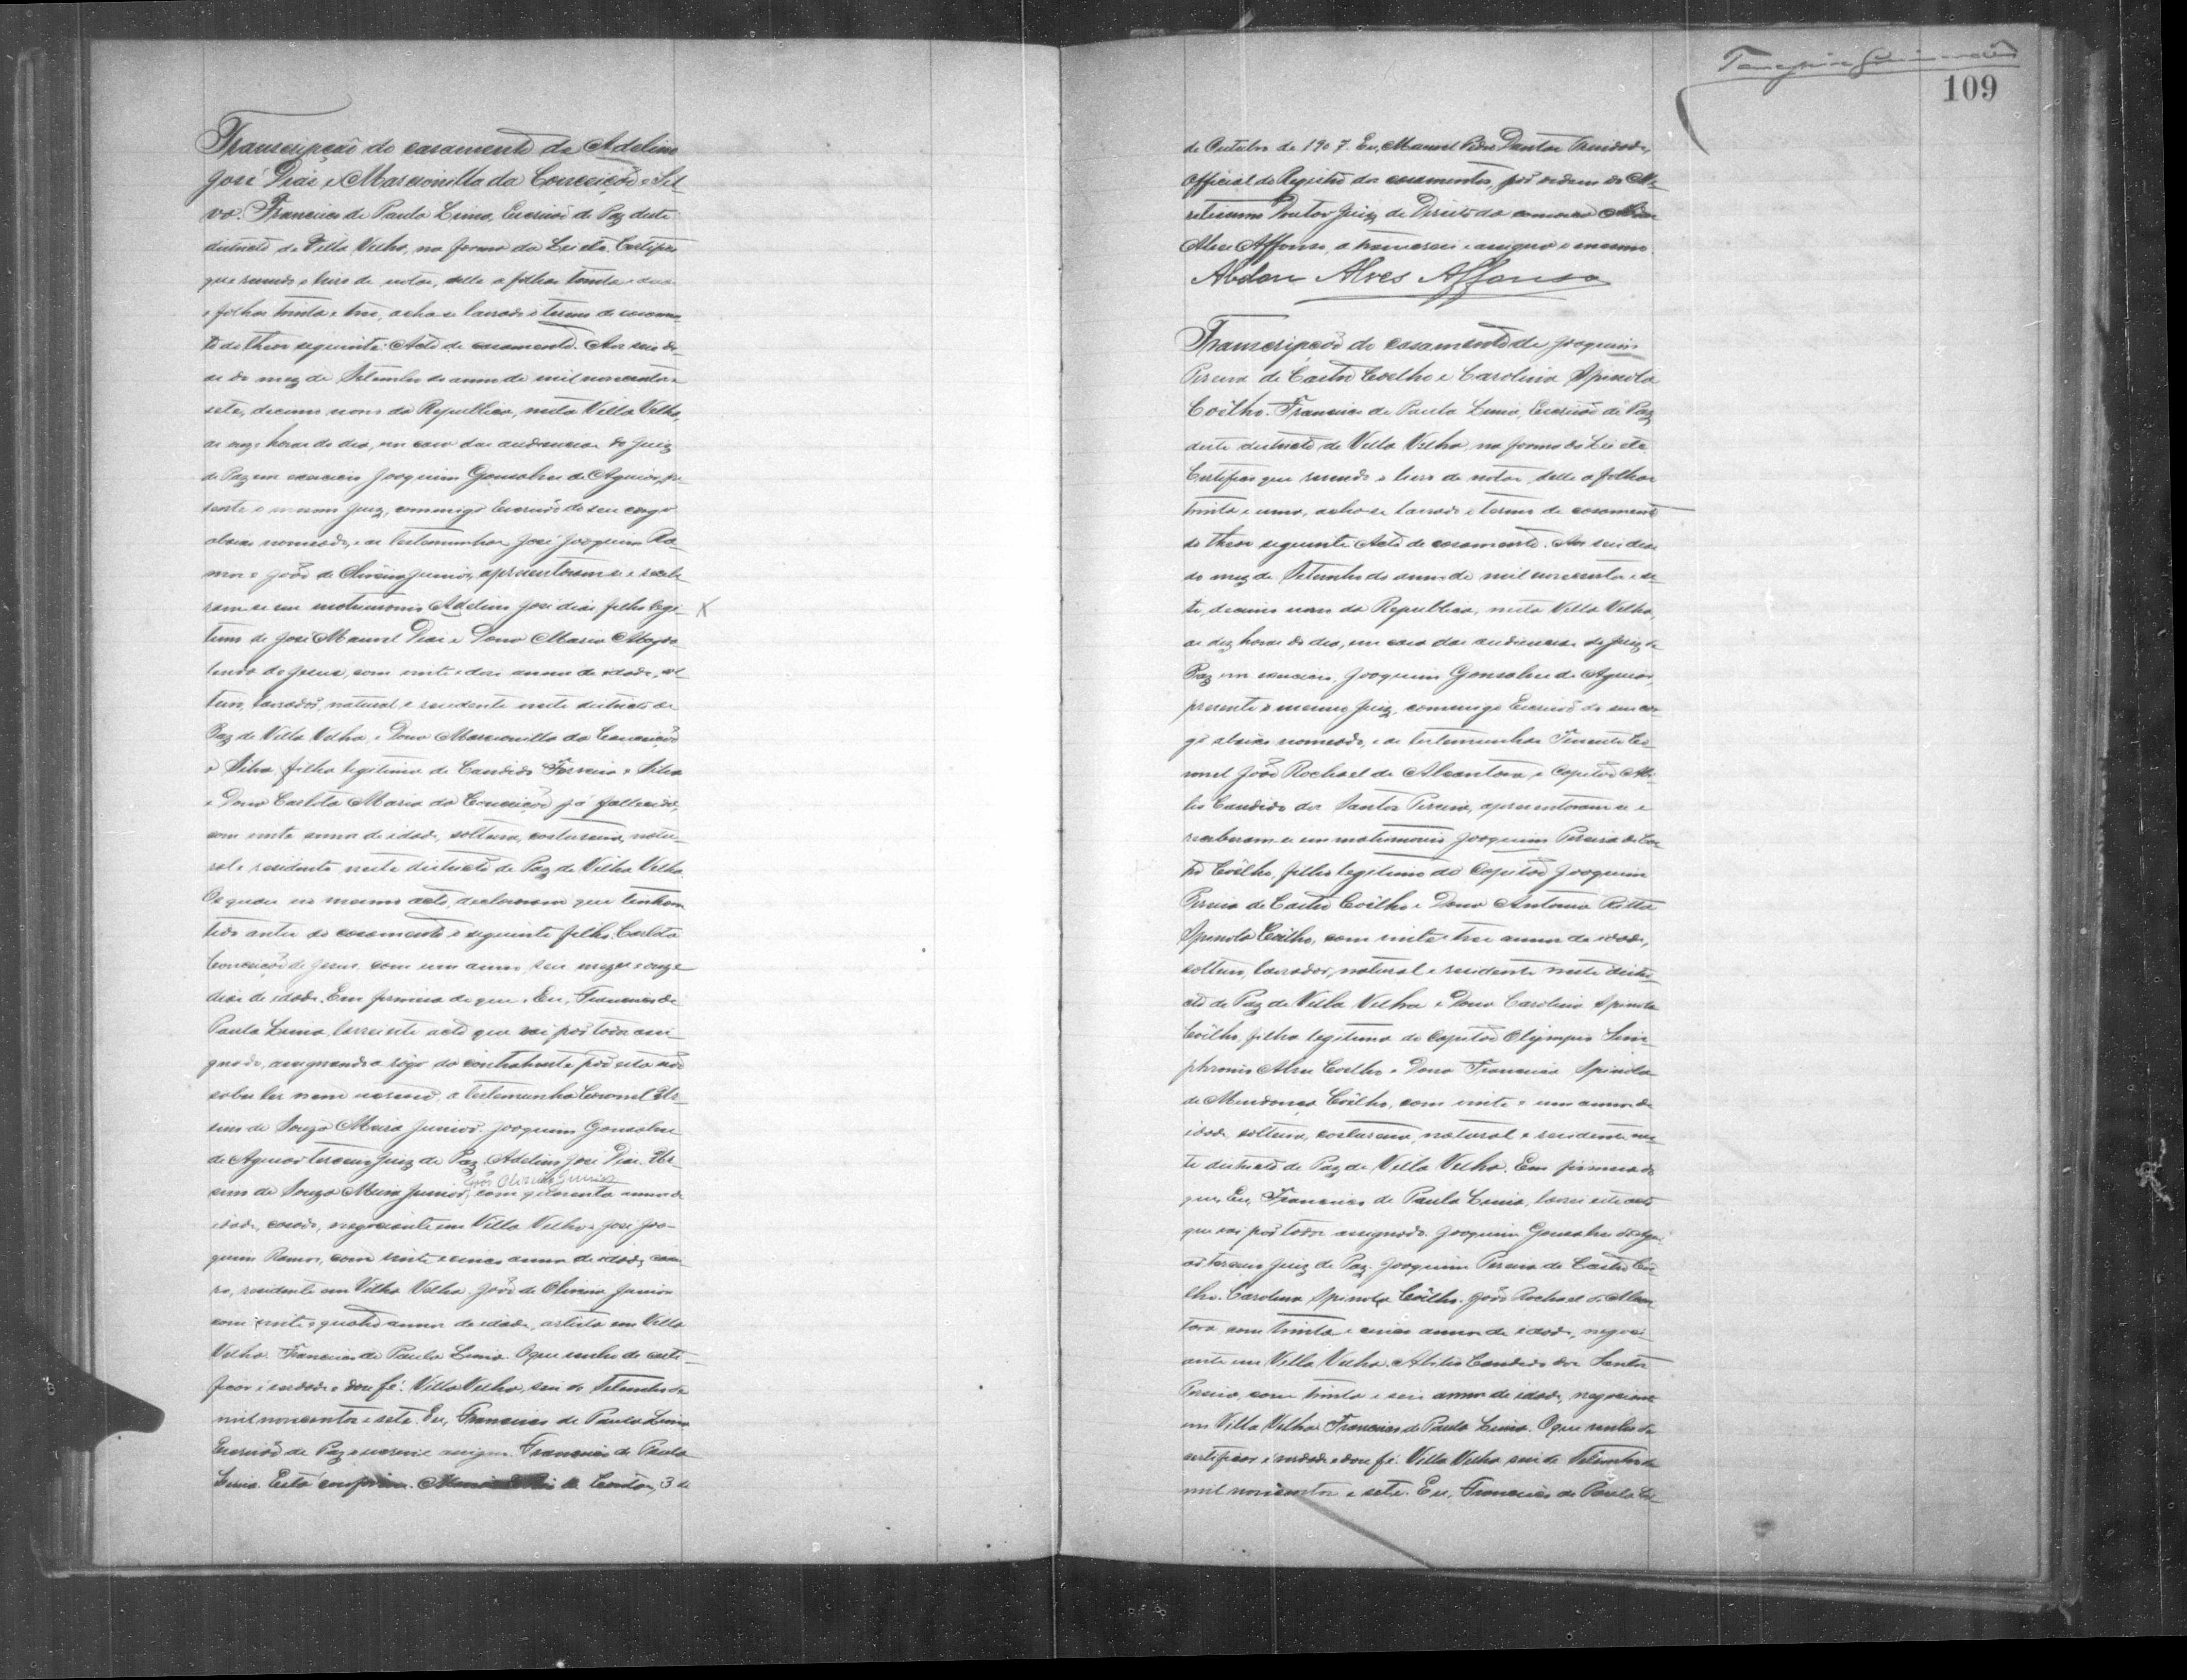 Transcripção do casamento de Adelino
José Dias e Marcionilla da Conceição e Sil-
va. Francisco de Paula Lima, Escrivão de Paz deste
districto de Villa Velha, na forma da Lei etc. Certifico
que revendo o livro de notas, delle a folhas trinta e duas
e folhas trinta e tres, acha-se lavrado o termo de casamen-
to do theor seguinte: Acto de casamento. Aos seis di-
as do mez de Setembro do anno de mil novecentos e
sete, decimo nono da Republica, nesta Villa Velha,
as onze horas do dia, em casa das audiencias do Juiz
de Paz em exercicio Joaquim Gonsalves de Aguiar, pre-
sente o mesmo Juiz, commigo Escrivão do seu cargo
abaixo nomeado, e as testemunhas José Joaquim Ra-
mos e João de Oliveira Junior, apresentaram-se e recebe-
ram-se em matrimonio Adelino José Dias filho legi- X
timo de José Manoel Dias e Dona Maria Magda-
lenda de Jesus, com vinte e dois annos de idade, sol-
teiro, lavrador, natural e residente neste districto de
Paz de Villa Velha, e Dona Marcionilla da Conceição
e Silva, filha legitima de Candido Ferreira e Silva
e Dona Carlota Maria da Conceição já fallecida,
com vinte annos de idade, solteira, costureira, natu-
ral e residente neste districto de Paz de Villa Velha.
Os quaes no mesmo acto, declararam que tenham
tido antes do casamento o seguinte filho: Carlota
Conceição de Jesus, com um anno seis mezes e onze
dias de idade. Em firmeza do que, Eu, Francisco de
Paula Lima, lavrei este acto que vai por todos assi-
gnado, assignando a rogo da contrahente por esta não
saber ler nem escrever, a testemunha Coronel Ur-
sino de Souza Meira Junior. Joaquim Gonsalves
de Aguiar terceiro Juiz de Paz. Adelino José Dias. Ur-
João Oliveira Junior
sino de Souza Meira Junior, com quarenta annos de
idade, casado, negociante em Villa Velha. José Joa-
quim Ramos, com vinte e cinco annos de idade, casei-
ro, residente em Villa Velha. João de Oliveira Junior
com vinte e quatro annos de idade, artista em Villa
Velha. Francisco de Paula Lima. O que venho de certi-
ficar é verdade e dou fé. Villa Velha, seis de Setembro de
mil novecentos e sete. Eu, Francisco de Paula Lima
Escrivão de Paz escrevi e assigno. Francisco de Paula
Lima. Está conforme. de Contas, 3 de
109
de Outubro de 1907. Eu, Manoel Pedro Dantas Trindade,
Official do Registro dos casamentos, por ordem do Me-
retissimo Doutor Juiz de Direito da comarca Abdon
Alves Affonso, a transcrevi e assigno o mesmo.
Abdon Alves Affonso
Transcripção do casamento de Joaquim
Pereira de Castro Coelho e Carolina Spinola
Coêlho. Francisco de Paula Lima, Escrivão de Paz
deste districto de Villa Velha, na forma da Lei etc
Certifico que revendo o livro de notas, delle a folhas
trinta e uma, acha-se lavrado o termo de casamento
do theor seguinte: Acto de casamento. Aos seis dias
do mez de Setembro do anno de mil novecentos e se-
te, decimo nono da Republica, nesta Villa Velha,
as dez horas do dia, em casa das audiencias do Juiz de
Paz em exercicio, Joaquim Gonsalves de Aguiar,
presente o mesmo Juiz, commigo Escrivão do seu car-
go abaixo nomeado, e as testemunhas Tenente Co-
ronel João Rochael de Alcantara e Capitão Abi-
lio Candido dos Santos Pereira, apresentaram-se e
receberam-se em matrimonio Joaquim Pereira de Cas-
tro Coêlho, filho legitimo do Capitão Joaquim
Pereira de Castro Coêlho e Dona Antonia Ritta
Spinola Coêlho, com vinte e tres annos de idade,
solteiro, lavrador, natural e residente neste distri-
cto de Paz de Villa Velha e Dona Carolina Spinola
Coêlho, filha legitima do Capitão Olympio Sim-
phronio Alves Coelho e Dona Francisca Spinola
de Mendonça Coêlho, com vinte e um annos de
idade, solteira, costureira, natural e residente nes-
te districto de Paz de Villa Velha. Em firmeza do
que, Eu, Francisco de Paula Lima, lavrei este acto
que vai por todos assignado. Joaquim Gonsalves de Agui-
ar terceiro Juiz de Paz. Joaquim Pereira de Castro Coê-
lho. Carolina Spinola Coêlho. João Rochael de Alcan-
tara, com trinta e cinco annos de idade, negoci-
ante em Villa Velha. Abilio Candido dos Santos
Pereira, com trinta e seis annos de idade, negociante
em Villa Velha. Francisco de Paula Lima. O que venho de
certificar é verdade e dou fé. Villa Velha seis de Setembro de
mil novecentos e sete. Eu, Francisco de Paula Li-